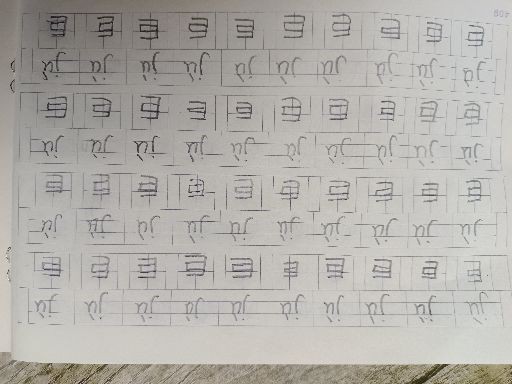 jù jù jù jù jù jù jù jù jù jù
巨 巨 巨 巨 巨 巨 巨 巨 巨 巨
jù jù jù jù jù jù jù jù jù jù
巨 巨 巨 巨 巨 巨 巨 巨 巨 巨
jù jù jù jù jù jù jù jù jù jù
巨 巨 巨 巨 巨 巨 巨 巨 巨 巨
jù jù jù jù jù jù jù jù jù jù
巨 巨 巨 巨 巨 巨 巨 巨 巨 巨